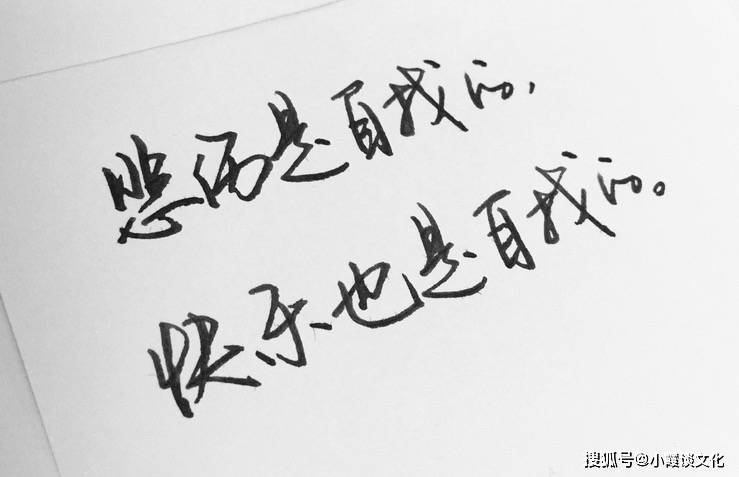 悲伤是自找的，
快乐也是自找的。
搜狐号@小霞谈文化